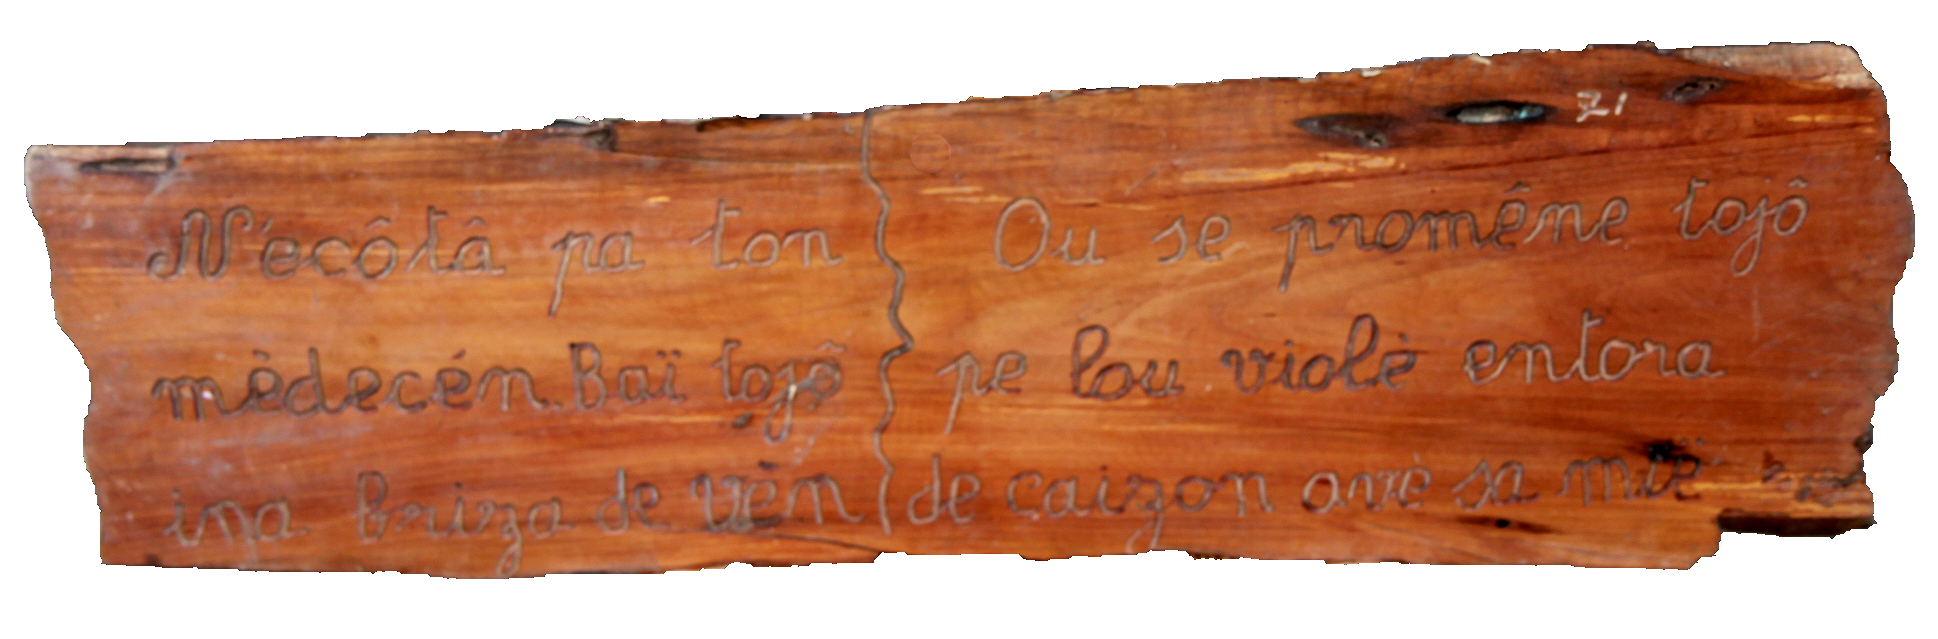 N'ecôtâ pa ton
mèdecén. Baï tojô
ina briza de vên
Ou se promêne tojô
pe lou violè entora
de caizon avè sa mië
21